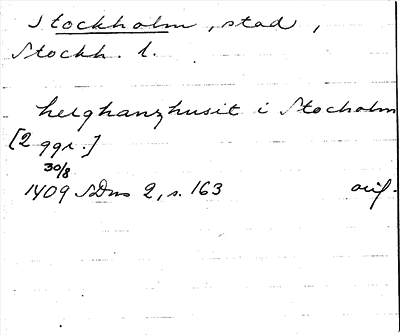 Stockholm, stad,
Stockh. l.
helghanzhusit i Stocholm
[2 ggr.]
30/8
1409 SDns 2, s. 163 orig.